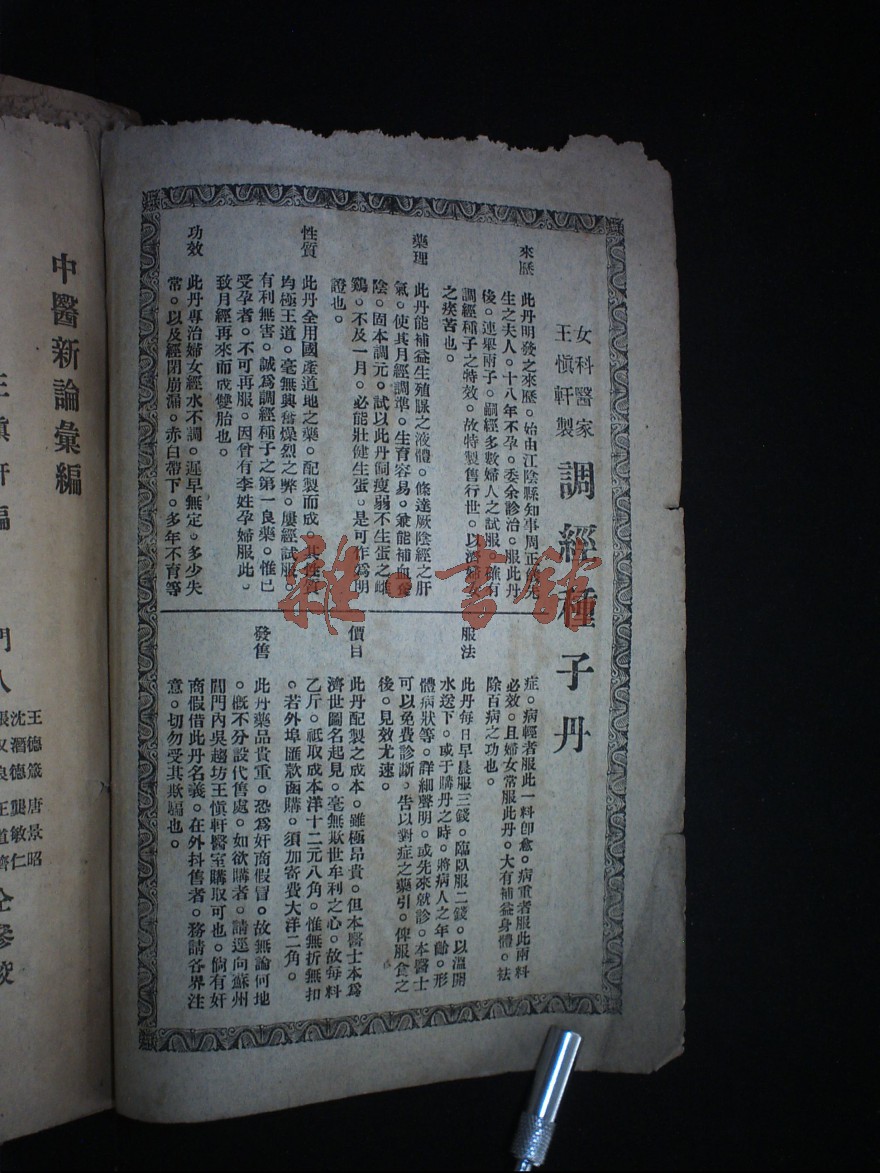 女科醫家
王愼軒製
調經種子丹
來歷
此丹明發之來歷。始由江陰縣知事周正
生之夫人。十八年不孕。委余診治。服此丹
後。連舉兩子。嗣經多數婦人之試服。確有
調經種子之特效。故特製售行世。以濟婦女
之疾苦也。
藥理
此丹能補益生殖脲之液體。條達厥陰經之肝
氣。使其月經調準。生育容易。兼能補血養
陰。固本調元。試以此丹飼瘦弱不生蛋之雌
鷄。不及一月。必能壯健生蛋。是可作爲明
證也。
性質
此丹全用國產道地之藥。配製而成。其性質
均極王道。毫無興奮燥烈之弊。屢經試服。
有利無害。誠爲調經種子之第一良藥。惟已
受孕者。不可再服。因曾有李姓孕婦服此。
致月經再來而成雙胎也。
功效
此丹專治婦女經水不調。遲早無定。多少失
常。以及經閉崩漏。赤白帶下。多年不育等
症。病輕者服此一料卽愈。病重者服此兩料
必效。且婦女常服此丹。大有補益身體。祛
除百病之功也。
服法
此丹每日早晨服三錢。臨臥服二錢。以溫開
水送下。或于購丹之時。將病人之年齡。形
體病狀等。詳細聲明。或先來就診。本醫士
可以免費診斷。告以對症之藥引。俾服食之
後。見效尤速。
價目
此丹配製之成本。雖極昂貴。但本醫士本爲
濟世圖名起見。毫無欺世牟利之心。故每料
乙斤。祗取成本洋十二元八角。惟無折無扣
。若外埠匯款函購。須加寄費大洋二角。
發售
此丹藥品貴重。恐爲奸商假冒。故無論何地
。概不分設代售處。如欲購者。請逕向蘇州
閶門內吳趨坊王愼軒醫室購取可也。倘有奸
商假借此丹名義。在外抖售者。務請各界注
意。切勿受其欺騙也。
中醫新論彙編
王愼軒編
門人
王德箴
沈潛德
唐景昭
龔敏仁
仝參校
雜·書館